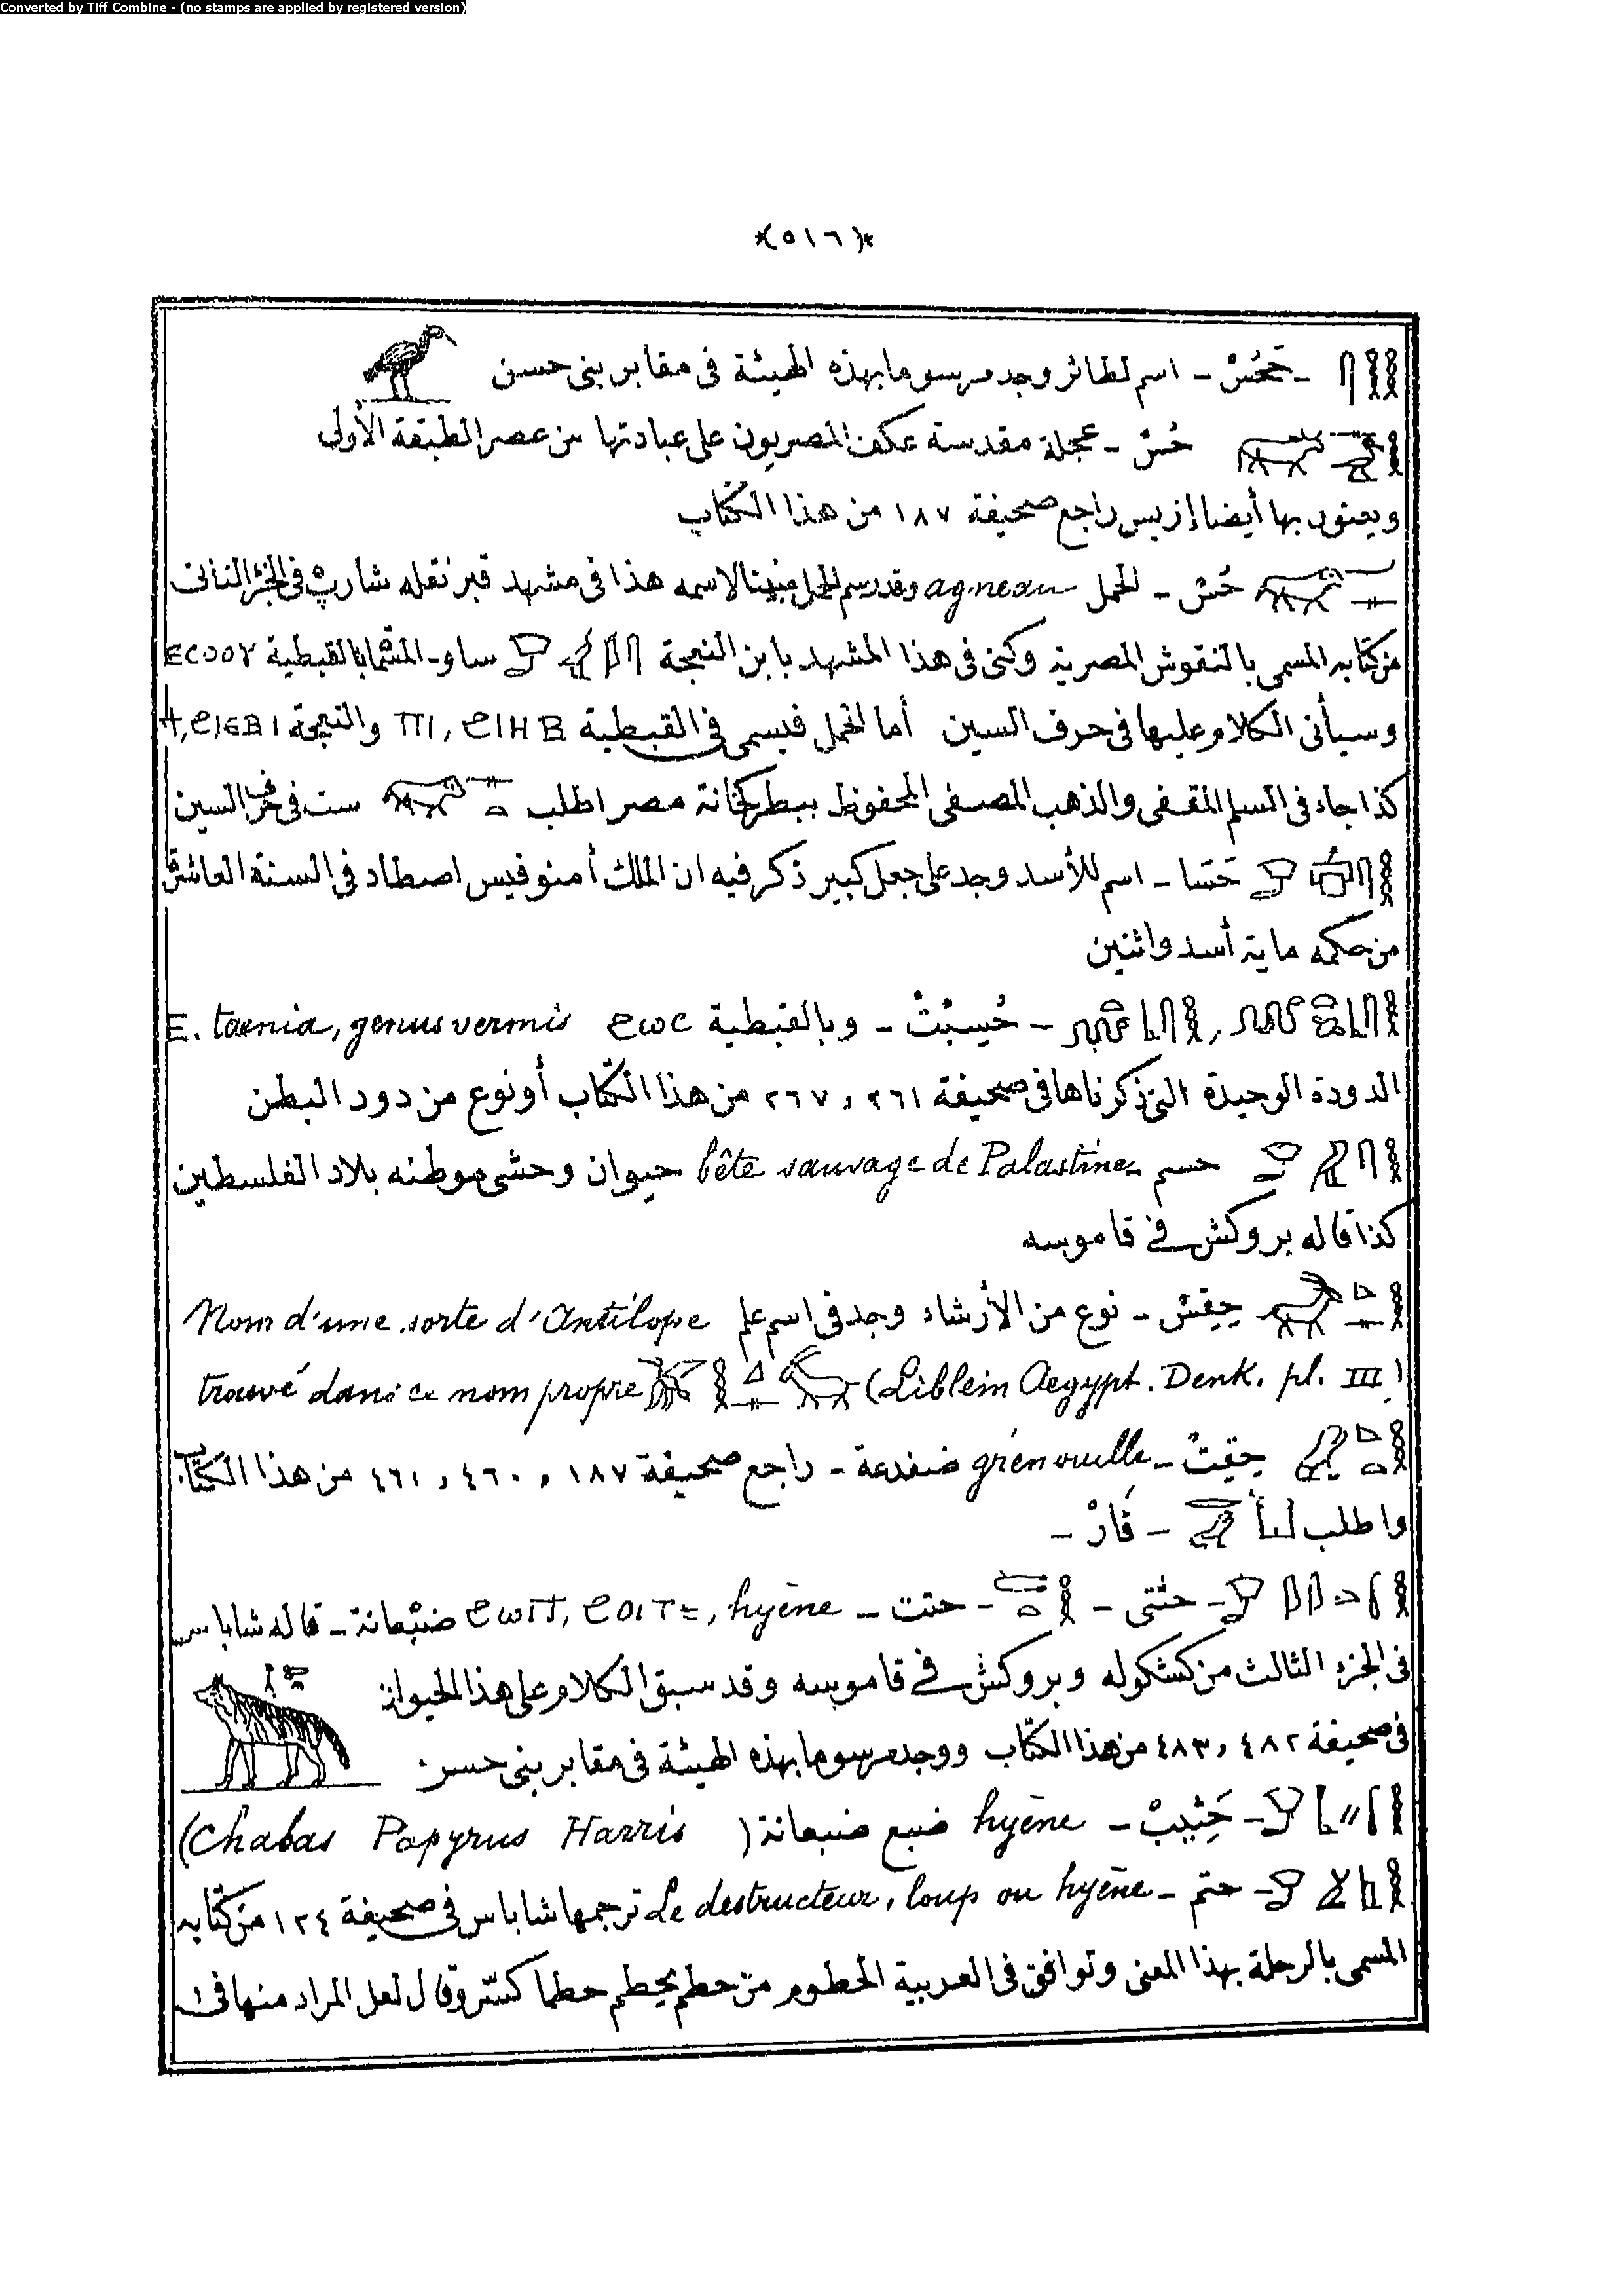 Converted by Tiff Combine - (no stamps are applied by registered version)
*(٥١٦)*
- حَحُسْ - اسم لطائر وجد مرسوما بهذه الهيئة فى مقابر بنى حسن
حُسْ - عجلة مقدسة عكف المصريون على عبادتها من عصر الطبقة الأولى
ويعنون بها أيضا إزيس راجع صحيفة ١٨٧ من هذا الكتاب
حُسْ - الحمل agneau وقد رسم الحمل مبينا لاسمه هذا فى مشهد قبر نقله شارپ فى الجزء الثانى
من كتابه المسمى بالنقوش المصرية وكنى فى هذا المشهد بابن النعجة ساو - المسماة بالقبطية ⲉⲥⲟⲟⲩ
وسيأتى الكلام عليها فى حرف السين أما الحمل فيسمى فى القبطية ⲡⲓ, ϩⲓⲏⲃ والنعجة ϯ, ϩⲓⲉⲃⲓ
كذا جاء فى السلم المقفى والذهب المصفى المحفوظ ببطركخانة مصر اطلب ست فى حرف السين
حَسَا - اسم للأسد وجد على جعل كبير ذكر فيه ان الملك أمنوفيس اصطاد فى السنة العاشرة
من حكمه ماية أسد واثنين
, - حُسِبْتْ - وبالقبطية ϩⲱⲥ E. taenia, genus vermis
الدودة الوحيدة التى ذكرناها فى صحيفة ٢٦١ و ٢٦٧ من هذا الكتاب أو نوع من دود البطن
حسم - bête sauvage de Palastine حيوان وحشى موطنه بلاد الفلسطين
كذا قاله بروكش فى قاموسه
حِقِسْ - نوع من الأرشاء وجد فى اسم علم Nom d'une sorte d'Antilope
trouvé dans ce nom propre (Liblein Aegypt. Denk. pl. III)
حِقِتْ - grenouille ضفدعة - راجع صحيفة ١٨٧ و ٤٦٠ و ٤٦١ من هذا الكتاب
واطلب - قَارْ -
- حثتى - - حتت - ϩⲱⲓⲧ, ϩⲟⲓⲧⲉ, hyène ضبعانة - قاله شاباس
فى الجزء الثالث من كشكوله وبروكش فى قاموسه وقد سبق الكلام على هذا الحيوان
فى صحيفة ٤٨٢ و ٤٨٣ من هذا الكتاب ووجد مرسوما بهذه الهيئة فى مقابر بنى حسن
- حَثِيبْ - hyène ضبع ضبعانة (Chabas Papyrus Harris)
- حتم - Le destructeur, loup ou hyène ترجمها شاباس فى صحيفة ١٣٤ من كتابه
المسمى بالرحلة بهذا المعنى وتوافق فى العربية الحطوم من حطم يحطم حطما كسّر وقال لعل المراد منها فى